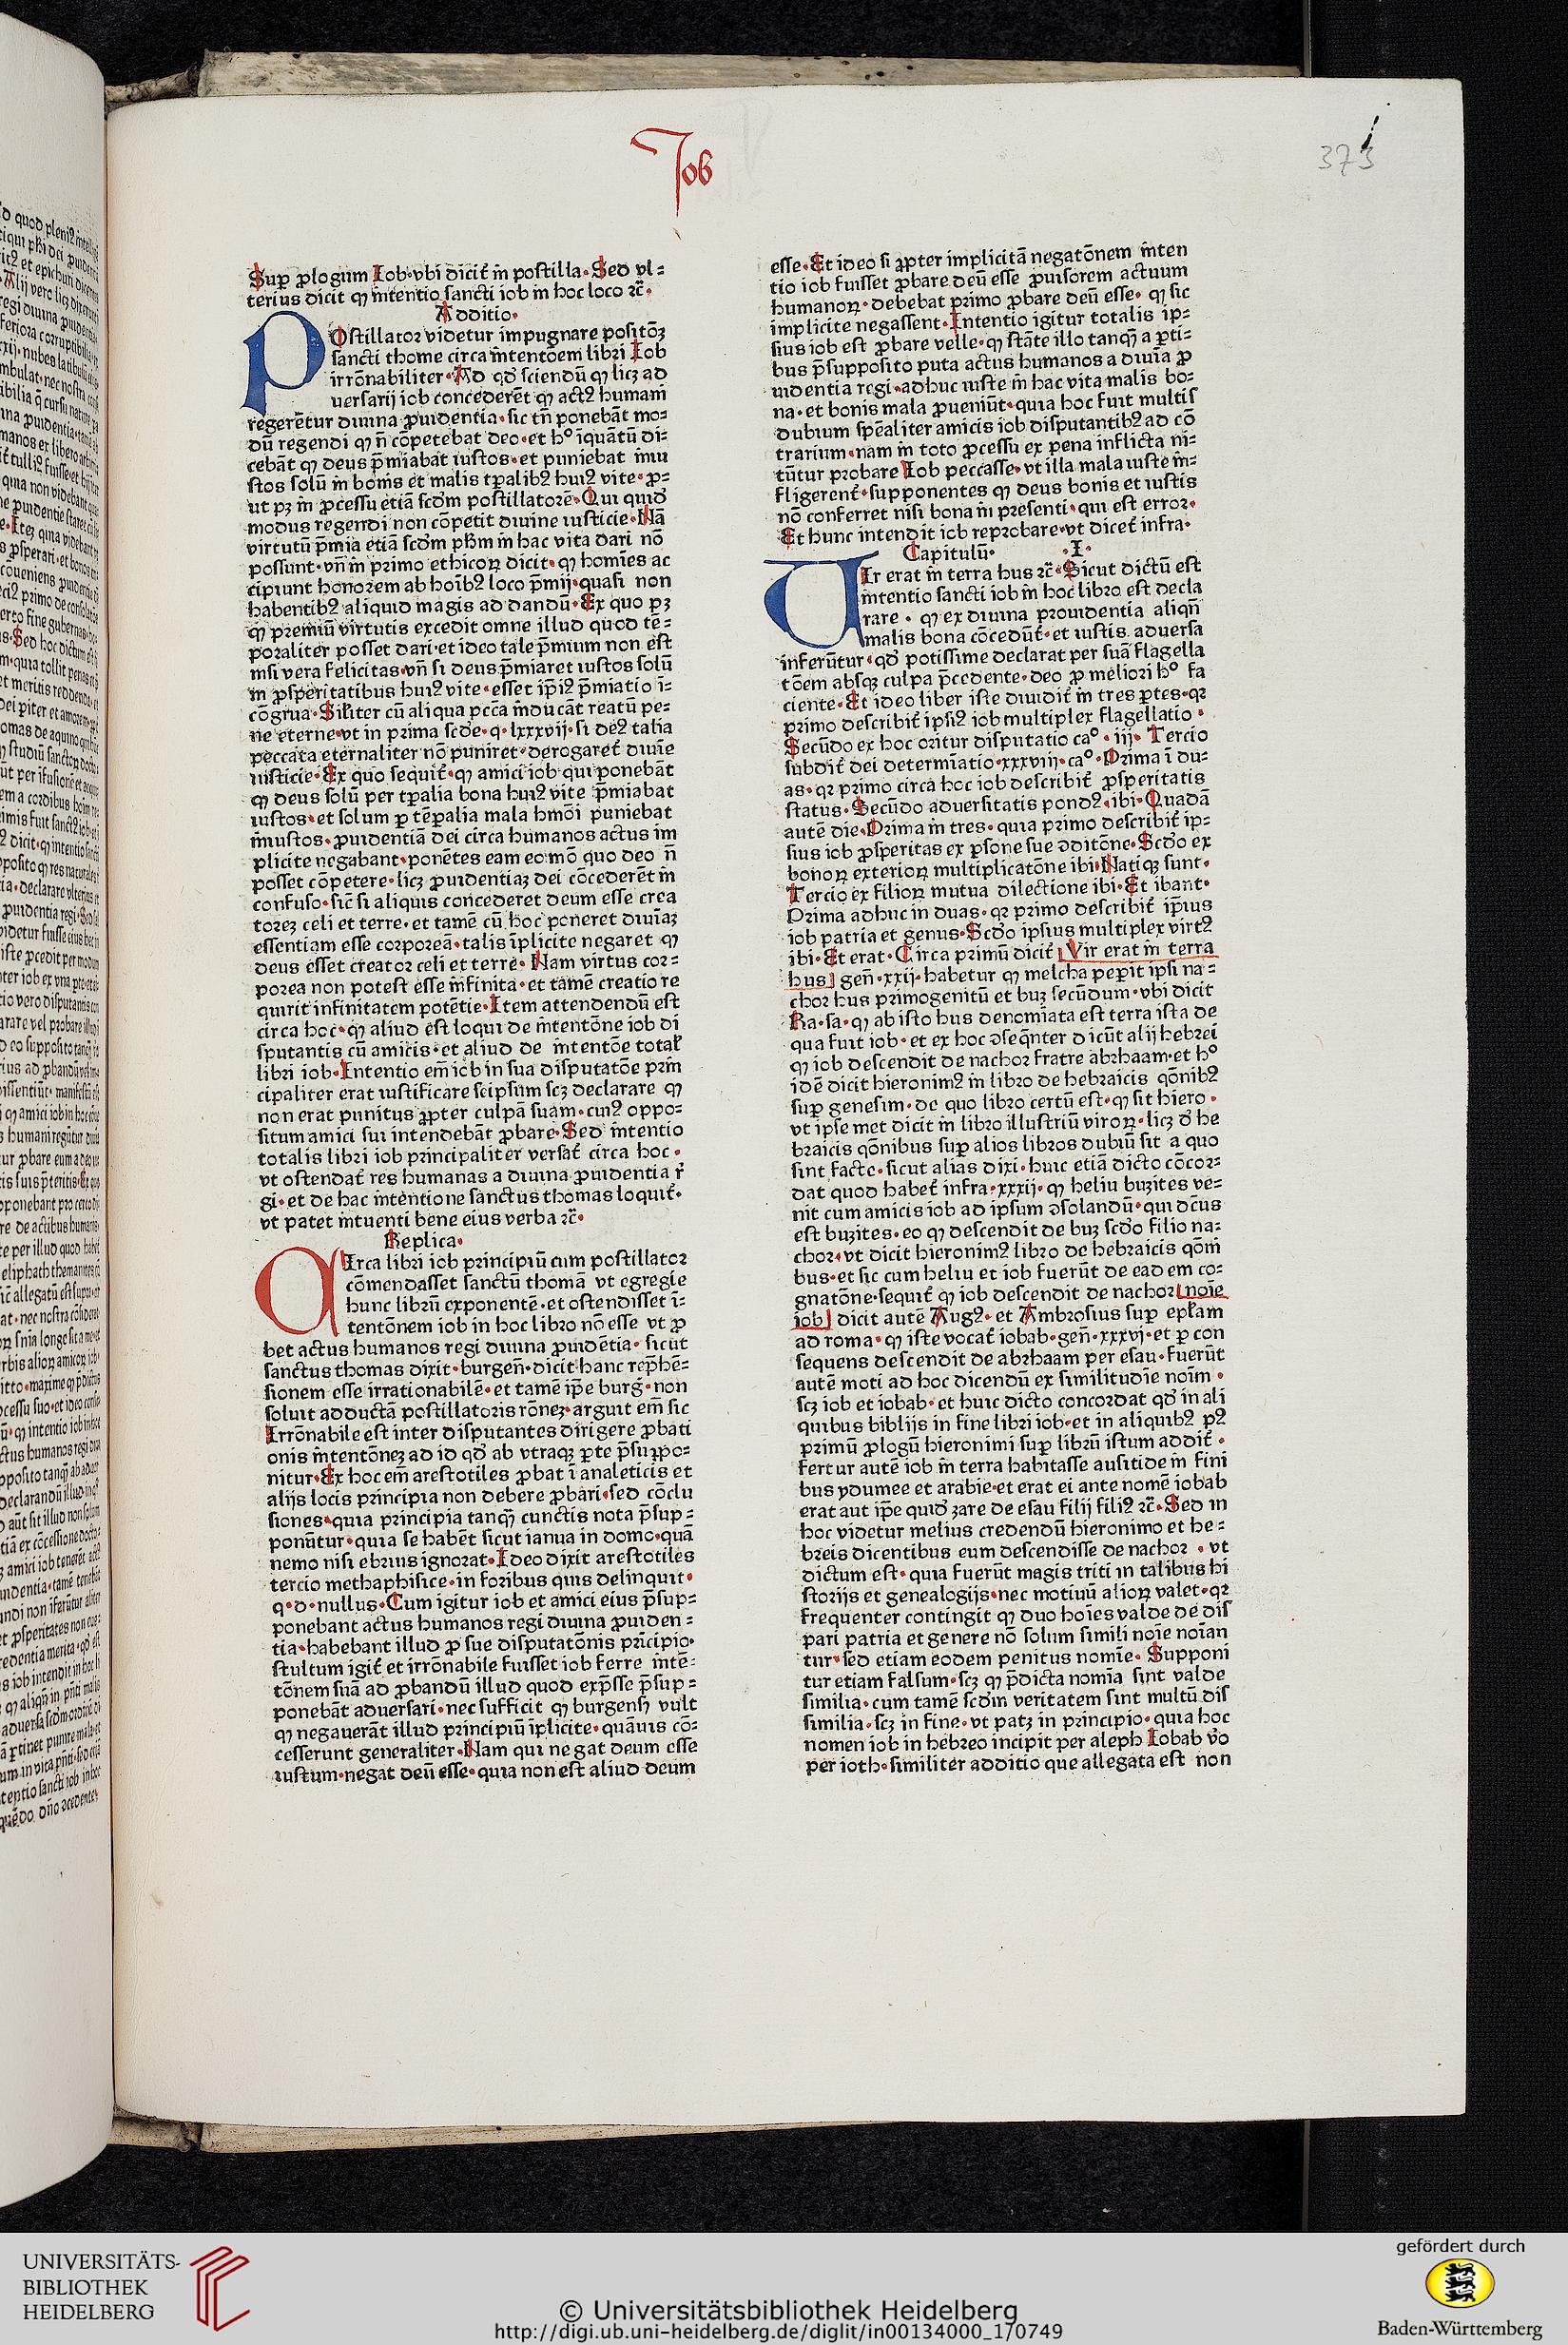 Job
373
Sup ꝓlogum Iob·vbi dicit̃ in postilla·Sed vl=
terius dicit ꝙ intentio sancti iob in hoc loco ⁊c̃·
Additio·
POstillator videtur impugnare positõꝫ
sancti thome circa intentõem libri Iob
irrõnabiliter·Ad qđ sciendũ ꝙ licꝫ ad
uersarij iob concederẽt ꝙ actꝰ humani
regerẽtur diuina ꝓuidentia·sic tñ ponebãt mo=
dũ regendi ꝙ ñ cõpetebat deo·et h° ĩquãtũ di=
cebãt ꝙ deus p̃miabat iustos·et puniebat iniu
stos solũ in bonis et malis tꝑalibꝰ huiꝰ vite·ꝓ=
ut pꝫ in ꝓcessu etiã scđm postillatorẽ·Qui quiđ
modus regendi non cõpetit diuine iusticie·Nã
virtutũ p̃mia etiã scđm pħm in hac vita dari nõ
possunt·vñ in primo ethicoꝝ dicit·ꝙ homĩes ac
cipiunt honorem ab hoĩbꝰ loco p̃mij·quasi non
habentibꝰ aliquid magis ad dandũ·Ex quo pꝫ
ꝙ premiũ virtutis excedit omne illud quod tẽ=
poraliter posset dari·et ideo tale p̃mium non est
nisi vera felicitas·vñ si deus p̃miaret iustos solũ
in ꝓsperitatibus huiꝰ vite·esset ip̃iꝰ p̃miatio ĩ=
cõgrua·Siĺiter cũ aliqua pcc̃a inducãt reatũ pe=
ne eterne·vt in prima scđe·q·lxxxvij·si deꝰ talia
peccata eternaliter nõ puniret·derogaret̃ diuĩe
iusticie·Ex quo sequit̃·ꝙ amici iob qui ponebãt
ꝙ deus solũ per tꝑalia bona huiꝰ vite p̃miabat
iustos·et solum ꝑ tẽꝑalia mala hmõi puniebat
iniustos·ꝓuidentiã dei circa humanos actus im
plicite negabant·ponẽtes eam eo mõ quo deo ñ
posset cõpetere·licꝫ ꝓuidentiaꝫ dei cõcederẽt in
confuso·sic̃ si aliquis concederet deum esse crea
toreꝫ celi et terre·et tamẽ cũ hoc poneret diuĩaꝫ
essentiam esse corporeã·talis ĩplicite negaret ꝙ
deus esset creator celi et terre·Nam virtus cor=
porea non potest esse infinita·et tamẽ creatio re
quirit infinitatem potẽtie·Item attendendũ est
circa hoc·ꝙ aliud est loqui de intentõne iob di
sputantis cũ amicis·et aliud de intentõe totaĺ
libri iob·Intentio em̃ iob in sua disputatõe prin
cipaliter erat iustificare seipsum scꝫ declarare ꝙ
non erat punitus ꝓpter culpã suam·cuiꝰ oppo=
situm amici sui intendebãt ꝓbare·Sed intentio
totalis libri iob principaliter versat̃ circa hoc·
vt ostendat̃ res humanas a diuina ꝓuidentia r̃
gi·et de hac intentione sanctus thomas loquit̃·
vt patet intuenti bene eius verba ⁊c̃·
Replica·
CIrca libri iob principiũ cum postillator
cõmendasset sanctũ thomã vt egregie
hunc librũ exponentẽ·et ostendisset ĩ=
tentõnem iob in hoc libro nõ esse vt ꝓ
bet actus humanos regi diuina ꝓuidẽtia·sicut
sanctus thomas dixit·burgeñ·dicit hanc rep̃hẽ=
sionem esse irrationabilẽ·et tamẽ ip̃e burg̃·non
soluit adductã postillatoris rõneꝫ·arguit em̃ sic
Irrõnabile est inter disputantes dirigere ꝓbati
onis intentõneꝫ ad id qđ ab vtraqꝫ ꝑte p̃suppo=
nitur·Ex hoc em̃ arestotiles ꝓbat ĩ analeticis et
alijs locis principia non debere ꝓbari·sed cõclu
siones·quia principia tanꝗ̃ cunctis nota p̃sup=
ponũtur·quia se habẽt sicut ianua in domo·quã
nemo nisi ebrius ignorat·Ideo dixit arestotiles
tercio methaphisice·in foribus quis delinquit·
q·d·nullus·Cum igitur iob et amici eius p̃sup=
ponebant actus humanos regi diuina ꝓuiden=
tia·habebant illud ꝓ sue disputatõnis prĩcipio·
stultum igit̃ et irrõnabile fuisset iob ferre intẽ=
tõnem suã ad ꝓbandũ illud quod exp̃sse p̃sup=
ponebãt aduersari·nec sufficit ꝙ burgenẜ vult
ꝙ negauerãt illud principiũ iplicite·quãuis cõ=
cesserunt generaliter·Nam qui negat deum esse
iustum·negat deũ esse·quia non est aliud deum
esse·Et ideo si ꝓpter implicitã negatõnem inten
tio iob fuisset ꝓbare deũ esse ꝓuisorem actuum
humanoꝝ·debebat primo ꝓbare deũ esse·ꝙ sic
implicite negassent·Intentio igitur totalis ip=
sius iob est ꝓbare velle·ꝙ stãte illo tanꝗ̃ a ꝑti=
bus p̃supposito puta actus humanos a diuĩa ꝓ
uidentia regi·adhuc iuste in hac vita malis bo=
na·et bonis mala ꝓueniũt·quia hoc fuit multis
dubium sp̃ealiter amicis iob disputantibꝰ ad cõ
trarium·nam in toto ꝓcessu ex pena inflicta ni=
tũtur probare Iob peccasse·vt illa mala iuste in=
fligerent̃·supponentes ꝙ deus bonis et iustis
nõ conferret nisi bona in presenti·qui est error·
Et hunc intendit iob reprobare·vt dicet̃ infra·
Capitulũ· ·I·
VIr erat in terra hus ⁊c̃·Sicut dictũ est
intentio sancti iob in hoc libro est decla
rare·ꝙ ex diuina prouidentia aliqñ
malis bona cõcedũt̃·et iustis aduersa
inferũtur·qđ potissime declarat per suã flagella
tõem absqꝫ culpa p̃cedente·deo ꝓ meliori h° fa
ciente·Et ideo liber iste diuidit̃ in tres ꝑtes·qꝛ
primo describit̃ ipsiꝰ iob multiplex flagellatio·
Secũdo ex hoc oritur disputatio ca°·iij·Tercio
subdit̃ dei determĩatio·xxxviij·ca°·Prima ĩ du=
as·qꝛ primo circa hoc iob describit̃ ꝓsperitatis
status·Secũdo aduersitatis pondꝰ·ibi·Quadã
autẽ die·Prima in tres·quia primo describit̃ ip=
sius iob ꝓsperitas ex ꝑsone sue ↄditõne·Scđo ex
bonoꝝ exterioꝝ multiplicatõne ibi·Natiqꝫ sunt·
Tercio ex filioꝝ mutua dilectione ibi·Et ibant·
Prima adhuc in duas·qꝛ primo describit̃ ip̃ius
iob patria et genus·Scđo ipsius multiplex virtꝰ
ibi·Et erat·Circa primũ dicit̃ Vir erat in terra
hus] geñ·xxij·habetur ꝙ melcha peꝑit ipsi na=
chor hus primogenitũ et buꝫ secũdum·vbi dicit
Ra·sa·ꝙ ab isto hus denomĩata est terra ista de
qua fuit iob·et ex hoc ↄseqñter dicũt alij hebrei
ꝙ iob descendit de nachor fratre abrhaam·et h°
idẽ dicit hieronimꝰ in libro de hebraicis qõnibꝰ
suꝑ genesim·de quo libro certũ est·ꝙ sit hiero·
vt ipse met dicit in libro illustriũ viroꝝ·licꝫ đ he
braicis qõnibus suꝑ alios libros dubiũ sit a quo
sint facte·sicut alias dixi·huic etiã dicto cõcor=
dat quod habet̃ infra·xxxij·ꝙ heliu buzites ve=
nit cum amicis iob ad ipsum ↄsolandũ·qui dc̃us
est buzites·eo ꝙ descendit de buꝫ scđo filio na=
chor·vt dicit hieronimꝰ libro de hebraicis qõni
bus·et sic cum heliu et iob fuerũt de eadem co=
gnatõne·sequit̃ ꝙ iob descendit de nachor [noĩe
iob] dicit autẽ Augꝰ·et Ambrosius suꝑ epĺam
ad roma·ꝙ iste vocat̃ iobab·geñ·xxxvj·et ꝑ con
sequens descendit de abrhaam per esau·fuerũt
autẽ moti ad hoc dicendũ ex similitudĩe noĩm·
scꝫ iob et iobab·et huic dicto concordat qđ in ali
quibus biblijs in fine libri iob·et in aliquibꝰ pꝰ
primũ ꝓlogũ hieronimi suꝑ librũ istum addit̃·
fertur autẽ iob in terra habitasse ausitide in fini
bus ydumee et arabie·et erat ei ante nomẽ iobab
erat aut ip̃e quiđ zare de esau filij filiꝰ ⁊c̃·Sed in
hoc videtur melius credendũ hieronimo et he=
breis dicentibus eum descendisse de nachor·vt
dictum est·quia fuerũt magis triti in talibus hi
storijs et genealogijs·nec motiuũ alioꝝ valet·qꝛ
frequenter contingit ꝙ duo hoĩes valde de dis
pari patria et genere nõ solum simili noĩe noĩan
tur·sed etiam eodem penitus nomĩe·Supponi
tur etiam falsum·scꝫ ꝙ p̃dicta nomĩa sint valde
similia·cum tamẽ scđm veritatem sint multũ dis
similia·scꝫ in fine·vt patꝫ in principio·quia hoc
nomen iob in hebreo incipit per aleph Iobab ṽo
per ioth·similiter additio que allegata est non
UNIVERSITÄTS-
BIBLIOTHEK
HEIDELBERG
© Universitätsbibliothek Heidelberg
http://digi.ub.uni-heidelberg.de/diglit/in00134000_1/0749
gefördert durch
Baden-Württemberg